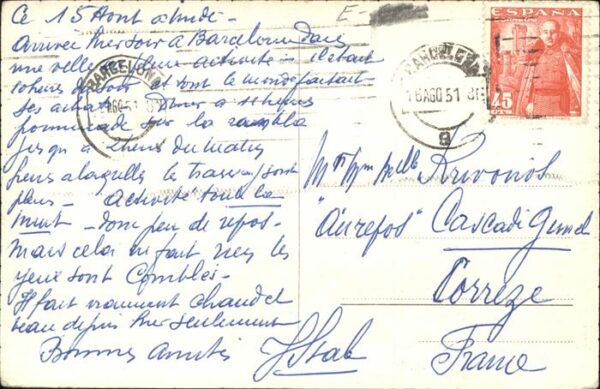 Ce 15 Aout à midi -
Arrivée hier soir à Barcelone dans
une ville d'une activité il etait
heures du soir et tout le monde faisait
ses achats -
promenade sur la rambla
jusqu'a heures du matin
heure a laquelle les trams sont
pleins - activité toute la
nuit - donc peu de repos -
Mais cela ne fait rien les
yeux sont Comblés -
Il fait vraiment chaud et
beau depuis hier seulement
Bonnes amitiés
E -
BARCELONA
AGO 51
BARCELONA
16 AGO 51
9
ESPAÑA
45
CTS
Krivonos
"Aurepos" Cascade Gimel
Correze
France